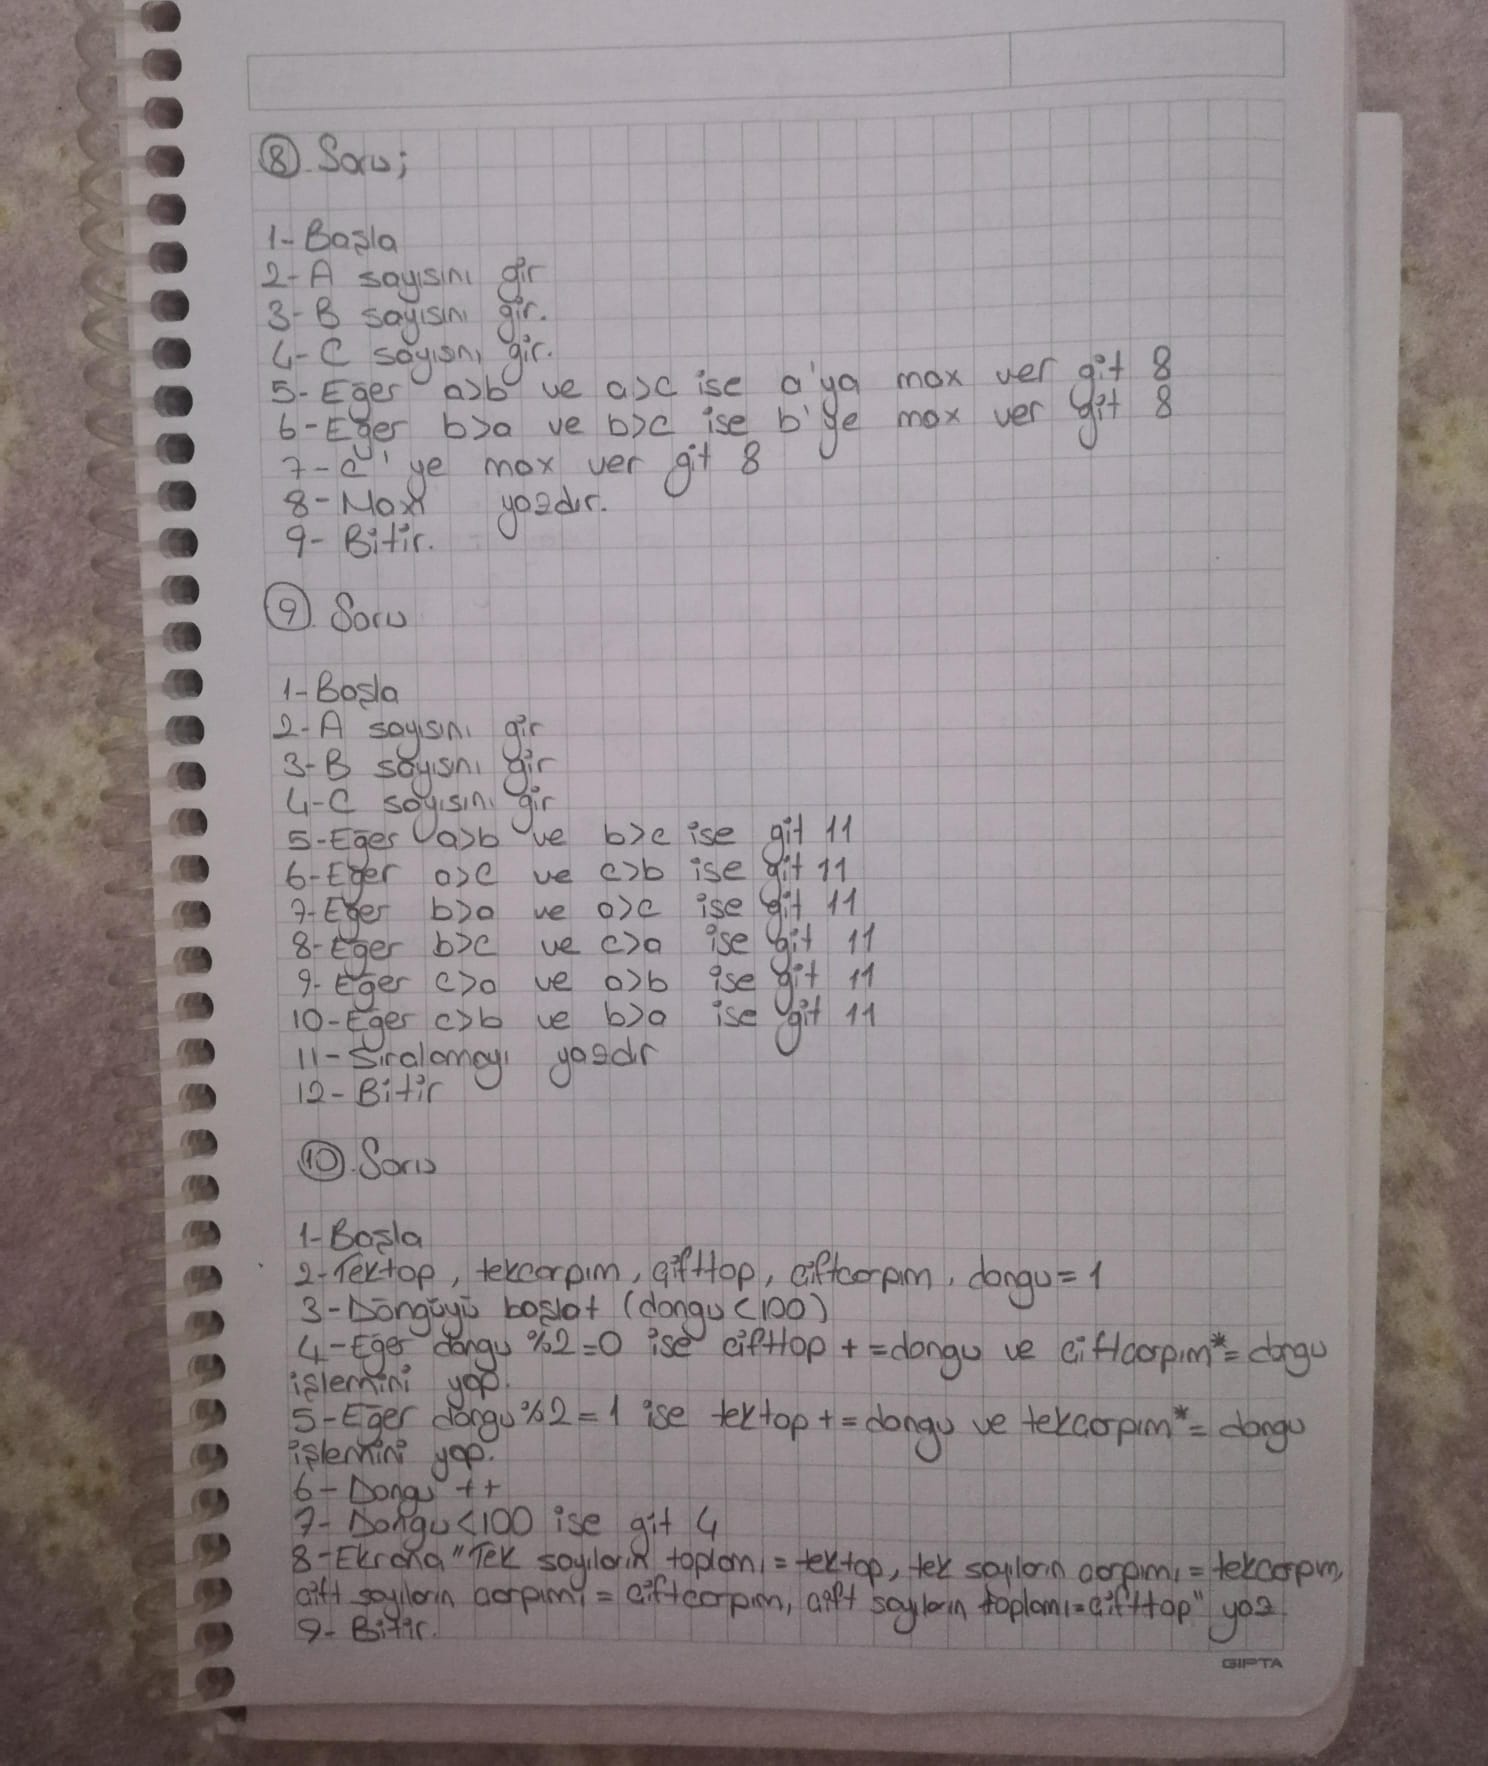 8. Soru;
1- Başla
2- A sayısını gir
3- B sayısını gir.
4- C sayısnı gir.
5- Eğer a>b ve a>c ise a'ya max ver git 8
6- Eğer b>a ve b>c ise b'ye max ver git 8
7- c'ye max ver git 8
8- Max yazdır.
9- Bitir.
9. Soru
1- Başla
2- A sayısını gir
3- B sayısını gir
4- C sayısını gir
5- Eğer a>b ve b>c ise git 11
6- Eğer a>c ve c>b ise git 11
7- Eğer b>a ve a>c ise git 11
8- Eğer b>c ve c>a ise git 11
9- Eğer c>a ve a>b ise git 11
10- Eğer c>b ve b>a ise git 11
11- Sıralamayı yazdır
12- Bitir
10. Soru
1- Başla
2- Tektop, tekcarpım, çifttop, çiftcarpım, dongu = 1
3- Döngüyü başlat (dongu<100)
4- Eğer dongu %2=0 ise cifttop += dongu ve ciftcarpım *= dongu
işlemini yap.
5- Eğer dongu %2=1 ise tektop += dongu ve tekcarpım *= dongu
işlemini yap.
6- Dongu ++
7- Dongu<100 ise git 4
8- Ekrana "Tek sayıların toplamı = tektop, tek sayıların çarpımı = tekcarpım,
çift sayıların çarpımı = çiftcarpım, çift sayıların toplamı = çifttop" yaz
9- Bitir.
GIPTA